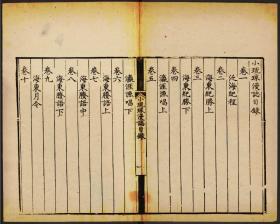 小琉球漫誌目錄
卷一
泛海紀程
卷二
海東紀勝上
卷三
海東紀勝下
卷四
瀛涯漁唱上
卷五
小琉球漫誌目錄
瀛涯漁唱下
卷六
海東賸語上
卷七
海東賸語中
卷八
海東賸語下
卷九
海東月令
卷十